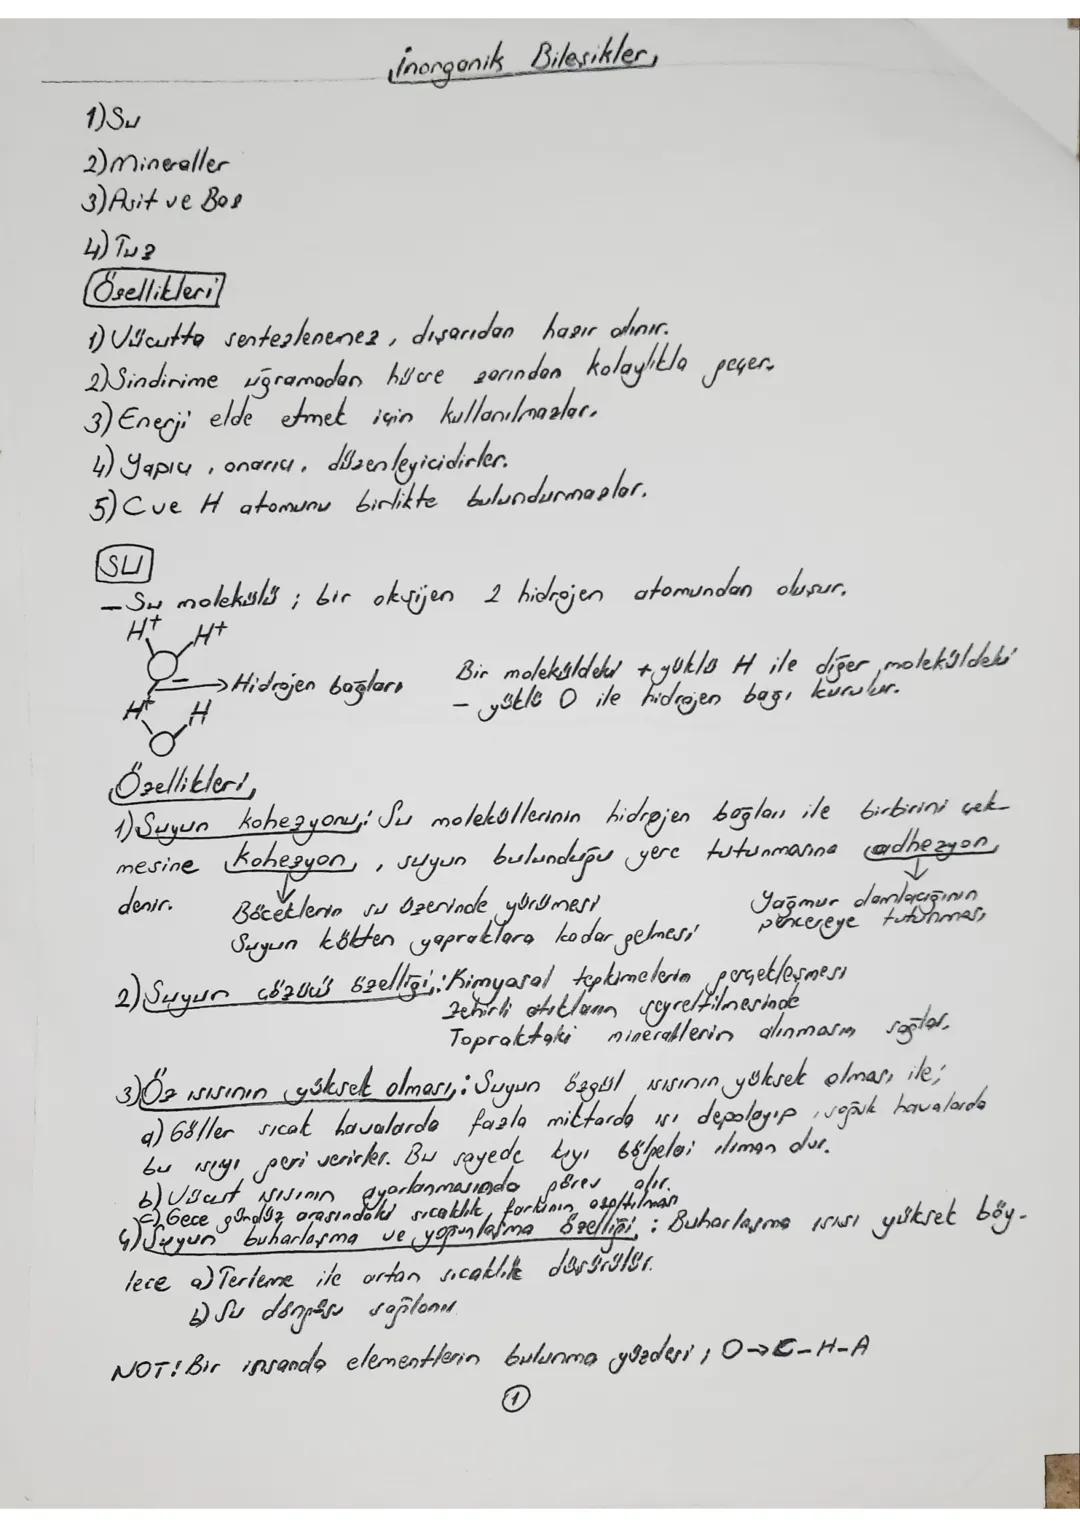 İnorganik Bileşikler
1) Su
2) Mineraller
3) Asit ve Baz
4) Tuz
Özellikleri
1) Vücutta sentezlenemez, dışarıdan hazır alınır.
2) Sindirime uğramadan hücre zarından kolaylıkla geçer.
3) Enerji elde etmek için kullanılmazlar.
4) Yapıcı, onarıcı, düzenleyicidirler.
5) C ve H atomunu birlikte bulundurmazlar.
SU
- Su molekülü; bir oksijen 2 hidrojen atomundan oluşur.
H+ H+
Hidrojen bağları
H+ H
Bir moleküldeki + yüklü H ile diğer moleküldeki
- yüklü O ile hidrojen bağı kurulur.
Özellikleri
1) Suyun kohezyonu: Su moleküllerinin hidrojen bağları ile birbirini çek-
mesine kohezyon, suyun bulunduğu yere tutunmasına adhezyon
denir.
Böceklerin su üzerinde yürümesi
Suyun kökten yapraklara kadar gelmesi
Yağmur damlacığının
pencereye tutunması
2) Suyun çözücü özelliği: Kimyasal tepkimelerin gerçekleşmesi
Zehirli atıkların seyreltilmesinde
Topraktaki minerallerin alınmasını sağlar.
3) Öz ısısının yüksek olması: Suyun özgül ısısının yüksek olması ile;
a) Göller sıcak havalarda fazla miktarda ısı depolayıp, soğuk havalarda
bu ısıyı geri verirler. Bu sayede kıyı bölgeleri ılıman dır.
b) Vücut ısısının ayarlanmasında görev alır.
c) Gece gündüz arasındaki sıcaklık farkının azaltılması
4) Suyun buharlaşma ve yoğunlaşma özelliği: Buharlaşma ısısı yüksek böy-
lece a) Terleme ile artan sıcaklık düşürülür.
b) Su döngüsü sağlanır.
NOT! Bir insanda elementlerin bulunma yüzdesi; O→C-H-A
1